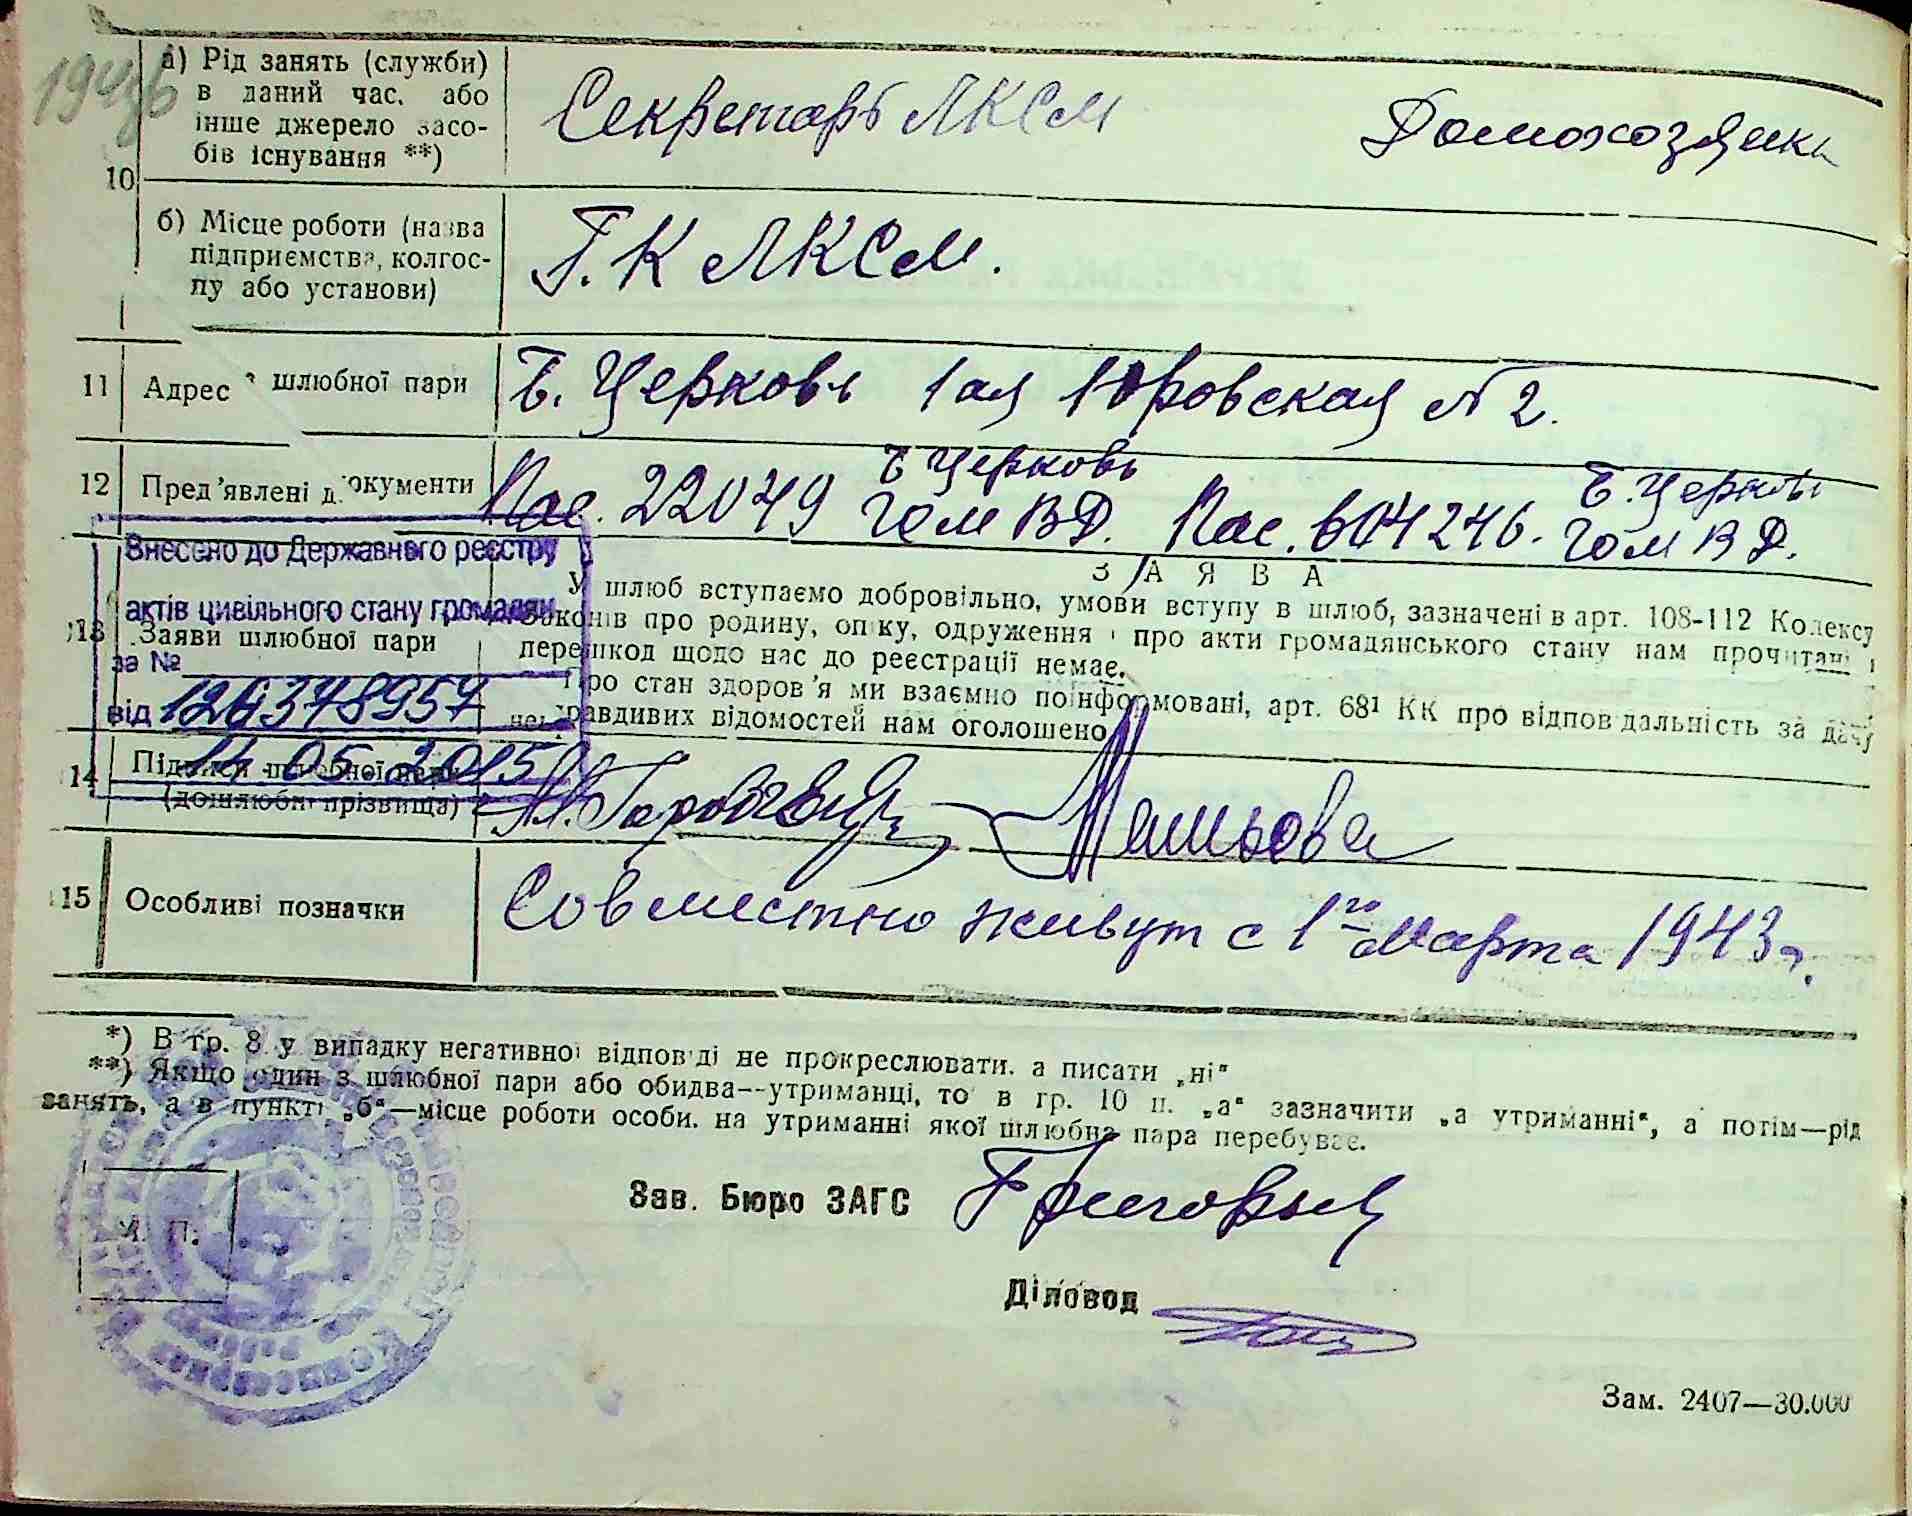 а) Рід занять (служби)
в даний час, або
інше джерело засо-
бів існування **)
Секретарь ЛКСМ
Домохозяйка
10
б) Місце роботи (назва
підприємства, колгос-
пу або установи)
Г.К ЛКСМ.
11 Адреса шлюбної пари
Б. Церковь 1ая Юровская № 2.
12 Пред'явлені документи
Пас. 22049 Б Церковь ГОМВД. Пас. 604246. Б. Церковь ГОМВД.
Внесено до Державного реєстру
актів цивільного стану громадян
за №
від 126378957
14 05 2015
13 Заяви шлюбної пари
З А Я В А
У шлюб вступаємо добровільно, умови вступу в шлюб, зазначені в арт. 108-112 Кодексу
Законів про родину, опіку, одруження і про акти громадянського стану нам прочитані і
перешкод щодо нас до реєстрації немає.
Про стан здоров'я ми взаємно поінформовані, арт. 68¹ КК про відповідальність за дачу
неправдивих відомостей нам оголошено
14 Підписи шлюбної пари
(дошлюбні прізвища)
15 Особливі позначки
Совместно живут с 1го Марта 1943 г.
*) В гр. 8 у випадку негативної відповіді не прокреслювати, а писати „ні“
**) Якщо один з шлюбної пари або обидва--утриманці, то в гр. 10 п. „а“ зазначити „а утриманні“, а потім—рід
занять, а в пункті „б“—місце роботи особи, на утриманні якої шлюбна пара перебуває.
Зав. Бюро ЗАГС
М. П.
Діловод
Зам. 2407—30.000